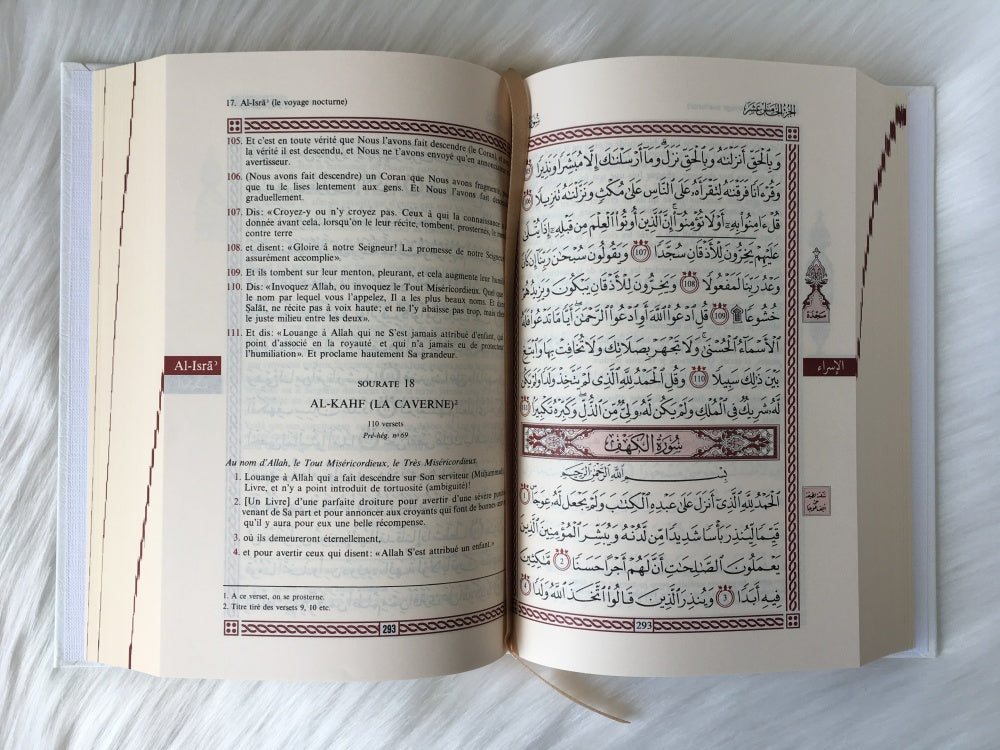 17. Al-Isrāʾ (le voyage nocturne)
105. Et c'est en toute vérité que Nous l'avons fait descendre (le Coran), et
la vérité il est descendu, et Nous ne t'avons envoyé qu'en
avertisseur.
106. (Nous avons fait descendre) un Coran que Nous avons
que tu le lises lentement aux gens. Et Nous l'avons fait
graduellement.
107. Dis: «Croyez-y ou n'y croyez pas. Ceux à qui la connaissance
donnée avant cela, lorsqu'on le leur récite, tombent, prosternés, le
contre terre
108. et disent: «Gloire à notre Seigneur! La promesse de notre
assurément accomplie».
109. Et ils tombent sur leur menton, pleurant, et cela augmente leur
110. Dis: «Invoquez Allah, ou invoquez le Tout Miséricordieux. Quel que
le nom par lequel vous l'appelez, Il a les plus beaux noms. Et dans
Ṣalāt, ne récite pas à voix haute; et ne l'y abaisse pas trop, mais
le juste milieu entre les deux».
111. Et dis: «Louange à Allah qui ne S'est jamais attribué d'enfant, qui
point d'associé en la royauté et qui n'a jamais eu de protecteur
l'humiliation». Et proclame hautement Sa grandeur.
Al-Isrāʾ
SOURATE 18
AL-KAHF (LA CAVERNE)²
110 versets
Pré-hég. n° 69
Au nom d'Allah, le Tout Miséricordieux, le Très Miséricordieux.
1. Louange à Allah qui a fait descendre sur Son serviteur
Livre, et n'y a point introduit de tortuosité (ambiguïté)!
2. [Un Livre] d'une parfaite droiture pour avertir d'une sévère
venant de Sa part et pour annoncer aux croyants qui font de bonnes
qu'il y aura pour eux une belle récompense.
3. où ils demeureront éternellement,
4. et pour avertir ceux qui disent: «Allah S'est attribué un enfant.»
1. A ce verset, on se prosterne.
2. Titre tiré des versets 9, 10 etc.
293
الجزء الخامس عشر
وَبِٱلۡحَقِّ أَنزَلۡنَٰهُ وَبِٱلۡحَقِّ نَزَلَۗ وَمَآ أَرۡسَلۡنَٰكَ إِلَّا مُبَشِّرٗا وَنَذِيرٗا
وَقُرۡءَانٗا فَرَقۡنَٰهُ لِتَقۡرَأَهُۥ عَلَى ٱلنَّاسِ عَلَىٰ مُكۡثٖ وَنَزَّلۡنَٰهُ تَنزِيلٗا 106
قُلۡ ءَامِنُواْ بِهِۦٓ أَوۡ لَا تُؤۡمِنُوٓاْۚ إِنَّ ٱلَّذِينَ أُوتُواْ ٱلۡعِلۡمَ مِن قَبۡلِهِۦٓ إِذَا يُتۡلَىٰ
عَلَيۡهِمۡ يَخِرُّونَۤ لِلۡأَذۡقَانِۤ سُجَّدٗاۤ 107 وَيَقُولُونَ سُبۡحَٰنَ رَبِّنَآ إِن كَانَ
وَعۡدُ رَبِّنَا لَمَفۡعُولٗا 108 وَيَخِرُّونَ لِلۡأَذۡقَانِ يَبۡكُونَ وَيَزِيدُهُمۡ
خُشُوعٗا ۩ 109 قُلِ ٱدۡعُواْ ٱللَّهَ أَوِ ٱدۡعُواْ ٱلرَّحۡمَٰنَۖ أَيّٗا مَّا تَدۡعُواْ فَلَهُ
ٱلۡأَسۡمَآءُ ٱلۡحُسۡنَىٰۚ وَلَا تَجۡهَرۡ بِصَلَاتِكَ وَلَا تُخَافِتۡ بِهَا وَٱبۡتَغِ
بَيۡنَ ذَٰلِكَ سَبِيلٗا 110 وَقُلِ ٱلۡحَمۡدُ لِلَّهِ ٱلَّذِي لَمۡ يَتَّخِذۡ وَلَدٗا وَلَمۡ يَكُن
لَّهُۥ شَرِيكٞ فِي ٱلۡمُلۡكِ وَلَمۡ يَكُن لَّهُۥ وَلِيّٞ مِّنَ ٱلذُّلِّۖ وَكَبِّرۡهُ تَكۡبِيرَۢا
سُورَةُ الكَهْفِ
بِسْمِ اللَّهِ الرَّحْمَٰنِ الرَّحِيمِ
ٱلۡحَمۡدُ لِلَّهِ ٱلَّذِيٓ أَنزَلَ عَلَىٰ عَبۡدِهِ ٱلۡكِتَٰبَ وَلَمۡ يَجۡعَل لَّهُۥ عِوَجَاۜ 1
قَيِّمٗا لِّيُنذِرَ بَأۡسٗا شَدِيدٗا مِّن لَّدُنۡهُ وَيُبَشِّرَ ٱلۡمُؤۡمِنِينَ ٱلَّذِينَ
يَعۡمَلُونَ ٱلصَّٰلِحَٰتِ أَنَّ لَهُمۡ أَجۡرًا حَسَنٗا 2 مَّٰكِثِينَ
فِيهِ أَبَدٗا 3 وَيُنذِرَ ٱلَّذِينَ قَالُواْ ٱتَّخَذَ ٱللَّهُ وَلَدٗا 4
سَجْدَة
الإسراء
293